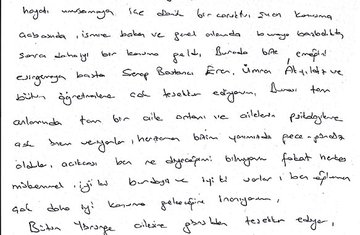 hayatı umursamaya, içe dönük bir çocuktu şuan konuma
gelmesinde, ismine bakan ve genel olarak buraya başladıktan
sonra daha iyi bir konuma geldi. Burada bize emeğini
esirgemeyen başta Serap Bostancı Eren, Ümran Akyıldız ve
bütün öğretmenlere çok teşekkür ediyorum. Burası tam
anlamında tam bir aile ortamı ve ailelerin psikolojisine
çok önem veriyorlar, her zaman bizim yanımızda gece-gündüz
oldular, açıkcası ben ne diyeceğimi bilmiyorum fakat herkes
mükemmel, iyi ki burdayız ve iyi ki varlar, ben oğlumun
çok daha iyi konuma geleceğine inanıyorum.
Bütün Yörünge ailesine gönülden teşekkür ediyor,